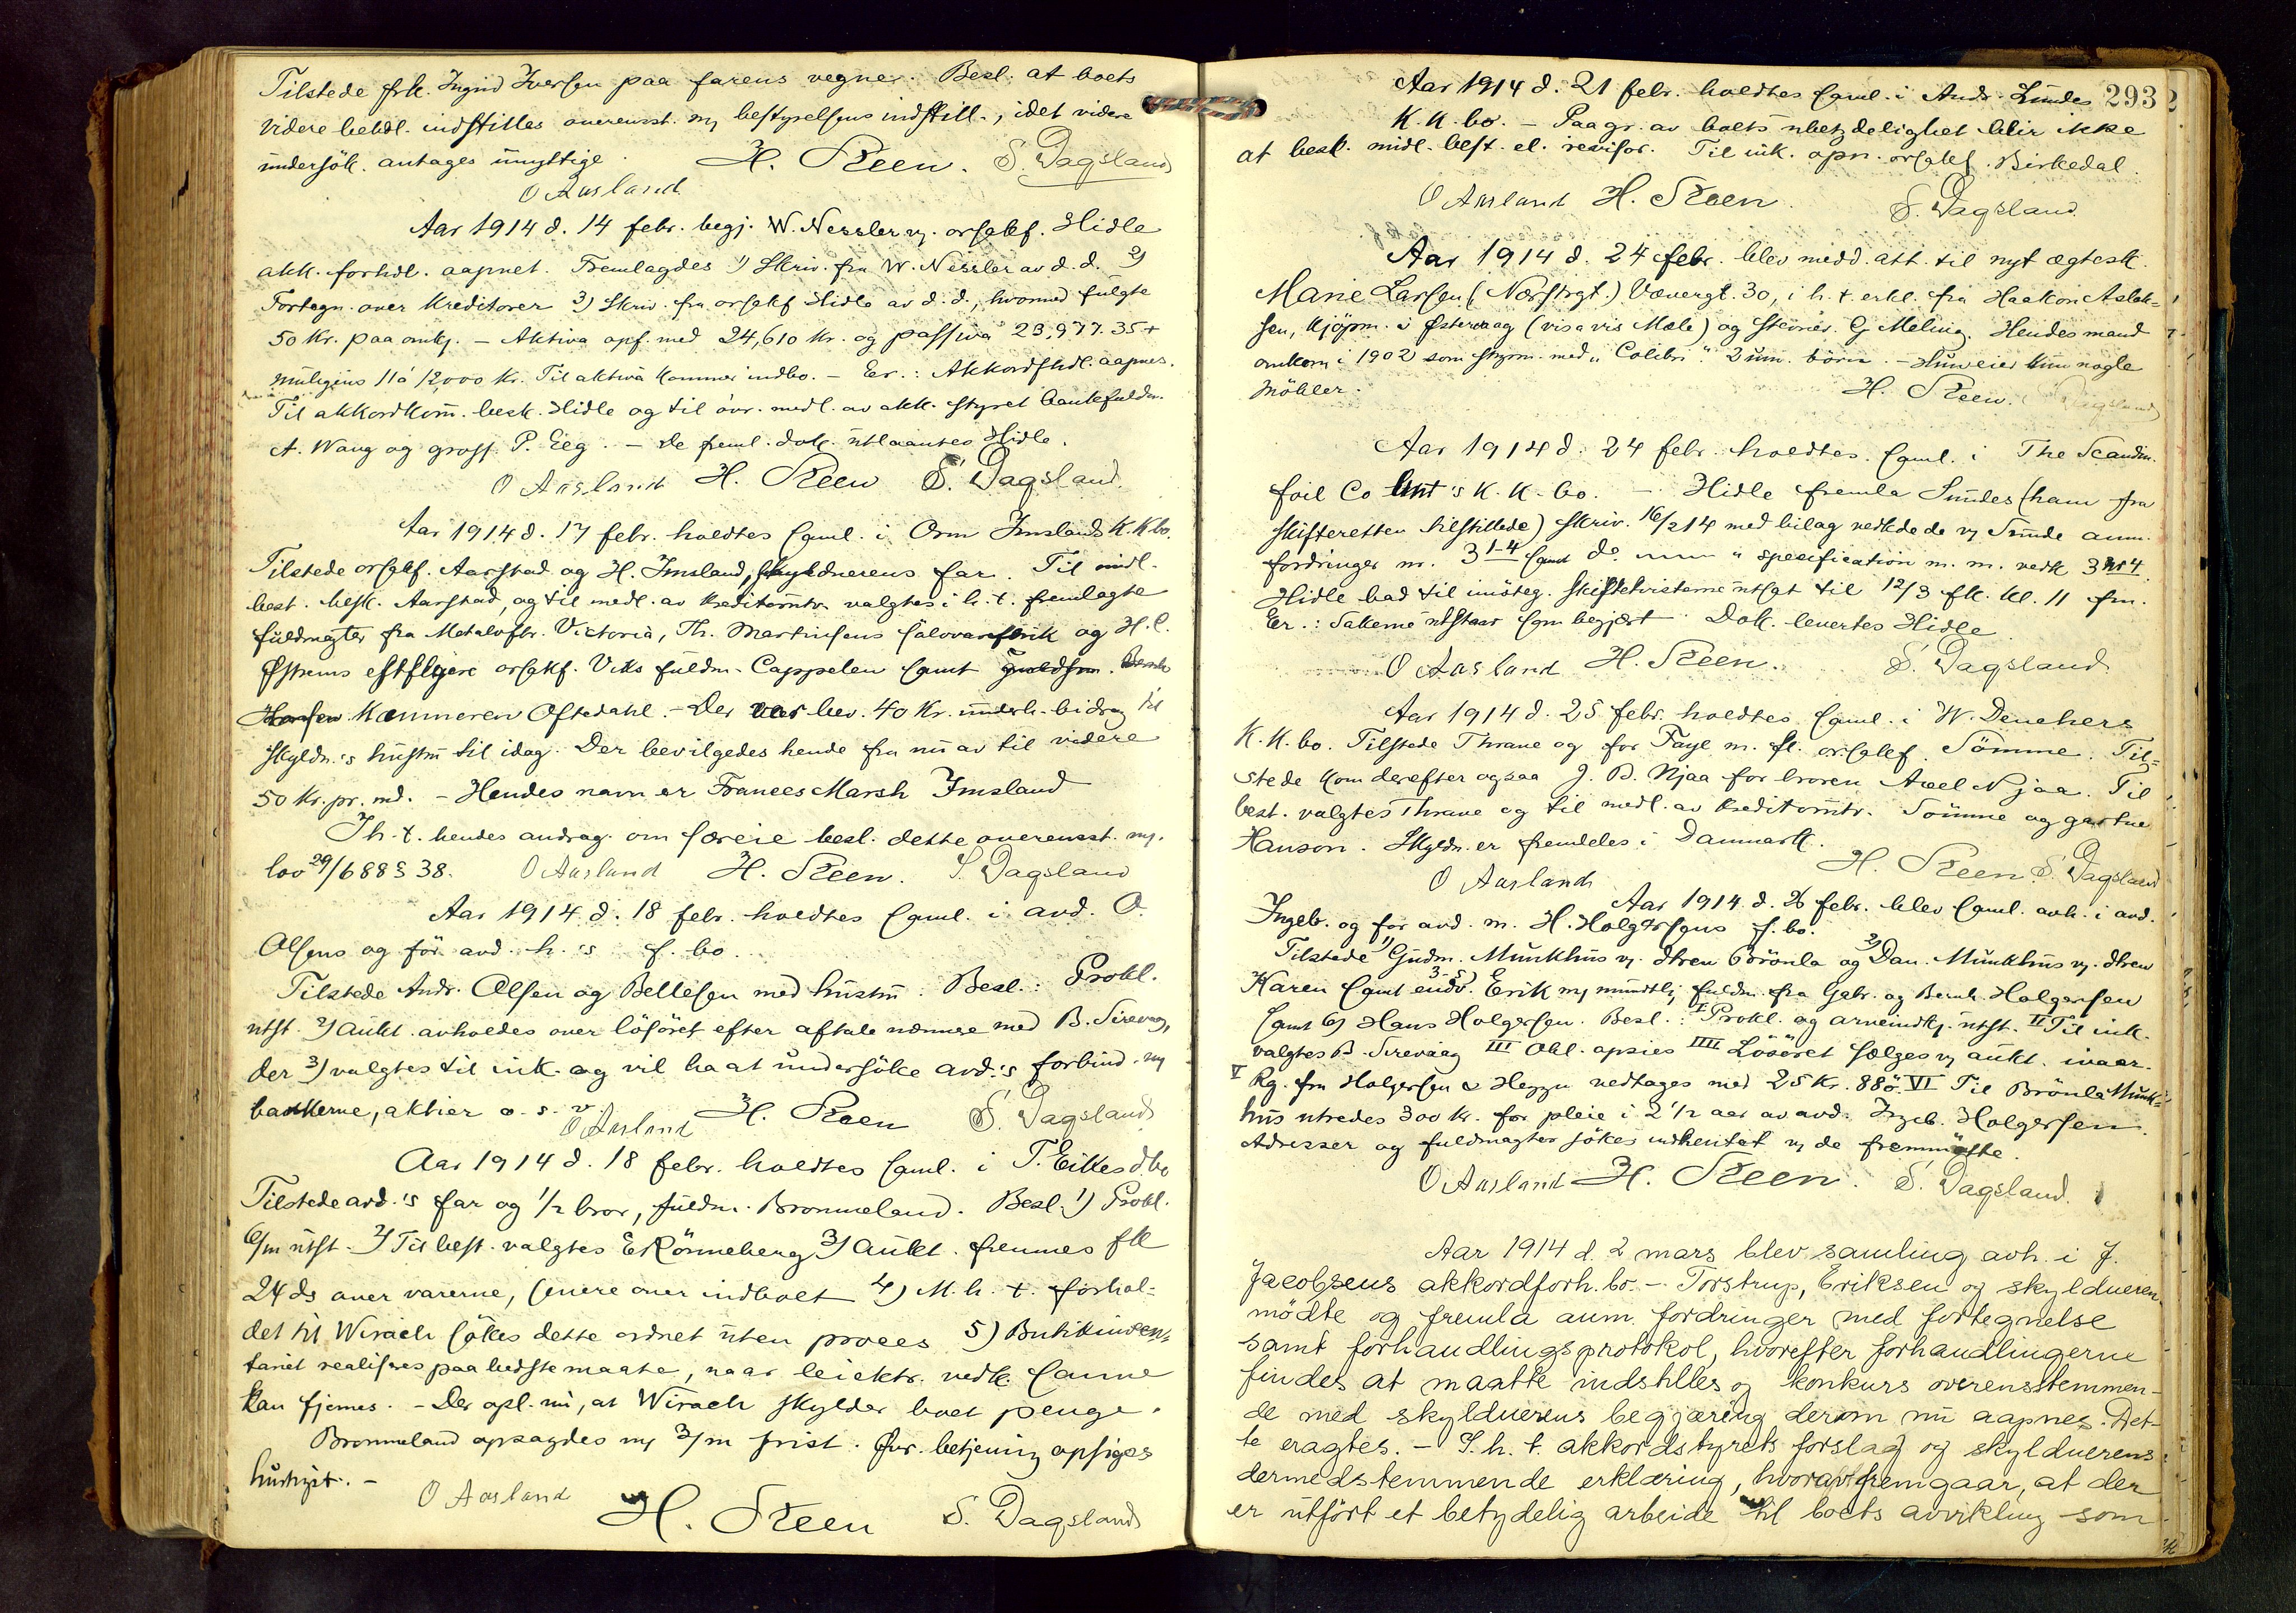 Tilstede frk. Ingrid Iversen paa farens vegne. Besl. at boets
videre behdl. indstilles overensst. m/ bestyrelsens indstill., idet videre
undersök. antages unyttige.
H. Steen. S. Dagsland
O Aasland
Aar 1914 d. 14 febr. begj. W. Nessler v/ orsakf. Hidle
akk. forhdl. aapnet. Fremlagdes 1) Skriv. fra W. Nessler av d. d. 2)
Fortegn. over Kreditorer 3) Skriv. fra orsakf Hidle av d. d., hvormed fulgte
50 Kr. paa omk/. - Aktiva opf. med 24,610 Kr. og passiva 23,977.35 +
muligens 11 à 12000 Kr. Til aktiva kommer indbo. - Er.: Akkordfhdl. aapnes.
Til akkordkom. besk. Hidle og til övr. medl. av akk. styret bankfuldm.
A. Waug og gross. P. Eeg. - De freml. dok. utlaantes Hidle.
O Aasland H. Steen S. Dagsland.
Aar 1914 d. 17 febr. holdtes saml. i Orm Imslands K. K. bo.
Tilstede orsakf. Aarstad og H. Imsland, skyldnerens far. Til midl.
best. besk. Aarstad, og til medl. av kreditorutv. valgtes i h. t. fremlagte
fuldmagter fra Metalvftr. Victoria, Th. Martinsens salovarefbrik og H. C.
Østrems eftflgere orsakf. Viks fuldm. Cappelen samt
Kæmneren Oftedahl. - Der blev bev. 40 Kr. underh. bidrag til
skyldn.'s hustru til idag. Der bevilgedes hende fra nu av til videre
50 Kr. pr. md. - Hendes navn er Frances Marsh Imsland
I h. t. hendes andrag. om særeie besl. dette overensst. m/.
lov 29/6 88 § 38. O Aasland H. Steen. S. Dagsland
Aar 1914 d. 18 febr. holdtes saml. i avd. O.
Olsens og för avd. h.'s f. bo.
Tilstede Andr. Olsen og Bellesen med hustru. Besl.: Prokl.
utst. 2) Aukt. avholdes over lösöret efter aftale nærmere med B. Sirevaag,
der 3) valgtes til ink. og vil ha at undersöke avd.'s forbind. m/
bankerne, aktier o. s. v.
O Aasland H. Steen S. Dagsland
Aar 1914 d. 18 febr. holdtes saml. i T. Eikes dbo
Tilstede avd.'s far og 1/2 bror, fuldm. Brommeland. Besl. 1) Prokl.
6/m utst. 2) Til best. valgtes E Rönneberg 3) Aukt. fremmes fk
24 ds over varerne, senere over indboet 4) M. h. t. forhol-
det til Wirach sökes dette ordnet uten proces 5) Butikinven-
tariet realiseres paa bedste maate, naar leiektr. vedk. samme
kan fjernes. - Der opl. nu, at Wirach skylder boet penge.
Brommeland opsagdes m/ 3/m frist. Øvr. betjening opsiges
hurtigst. -
O Aasland H. Steen S. Dagsland
293
Aar 1914 d. 21 febr. holdtes saml. i Andr. Lundes
K. K. bo. - Paa gr. av boets ubetydelighet blir ikke
at besk. midl. best. el. revisor. Til ink. opn. orsakf. Birkedal.
O Aasland H. Steen. S. Dagsland.
Aar 1914 d. 24 febr. blev medd. att. til nyt ægtesk.
Marie Larsen (Nærstrgt.) Vævergt. 30, i h. t. erkl. fra Haakon Aslak-
sen, Kjöpm. i Østervaag (vis a vis Møle) og stenar. G Meling. Hendes mand
omkom i 1902 som styrm. med "Colibri" 2 um. börn. - Hun eier kun nogle
möbler. H. Steen. S. Dagsland
Aar 1914 d. 24 febr. holdtes saml. i The Scandin.
foil Co Lmt's K. K. bo. - Hidle fremla Sundes (ham fra
skifteretten tilstillede) skriv. 16/2 14 med bilag vedkdede v/ Sunde anm.
fordringer nr. 3 1-4 samt do " specification m. m. vedk 3 nr 4.
Hidle bad til imöteg. skiftetvisterne utsat til 12/3 fk. kl. 11 fm.
Er.: Sakerne utstaar som begjært. Dok. levertes Hidle.
O Aasland H. Steen. S. Dagsland
Aar 1914 d. 25 febr. holdtes saml. i W. Denekers
K. K. bo. Tilstede Thrane og for Faye m. fl. orsakf. Sömme. Til-
stede kom derefter ogsaa J. B. Njaa for broren Axel Njaa. Til
best. valgtes Thrane og til medl. av kreditorutv. Sömme og gartner
Hanson. Skyldn. er fremdeles i Danmark.
O Aasland H. Steen S. Dagsland
Aar 1914 d. 26 febr. blev saml. avh. i avd.
Ingeb. og for avd. m. H. Holgersens f. bo.
Tilstede 1) Gudm. Munkhus v/ dtren Brönla og 2) Dan. Munkhus v/ dtren
Karen samt endv. 3-5) Erik m/ mundtlig fuldm. fra Gabr. og Bernh. Holgersen
samt 6) Hans Holgersen. Besl.: I Prokl. og arveindk/. utst. II Til ink.
valgtes B. Sirevaag III Obl. opsies IIII Lösöret sælges v/ aukt. ivaar.
V Rg. fra Holgersen & Heggn vedtages med 25 Kr. 88 ö. VI Til Brönla Munk-
hus utredes 300 kr. for pleie i 2 1/2 aar av avd. Ingeb. Holgersen.
Adresser og fuldmagter sökes indhentet v/ de fremmötte.
O Aasland H. Steen. S. Dagsland.
Aar 1914 d. 2 mars blev samling avh. i J.
Jacobsens akkordforh. bo. - Torstrup, Eriksen og skyldneren
mödte og fremla anm. fordringer med fortegnelse
samt forhandlingsprotokol, hvorefter forhandlingerne
findes at maatte indstilles og konkurs overensstemmen-
de med skyldnerens begjæring derom nu aapnes. Det-
te eragtes. - I. h. t. akkordstyrets forslag og skyldnerens
dermed stemmende erklæring, hvorav fremgaar, at der
er utfört et betydelig arbeide til boets avvikling som